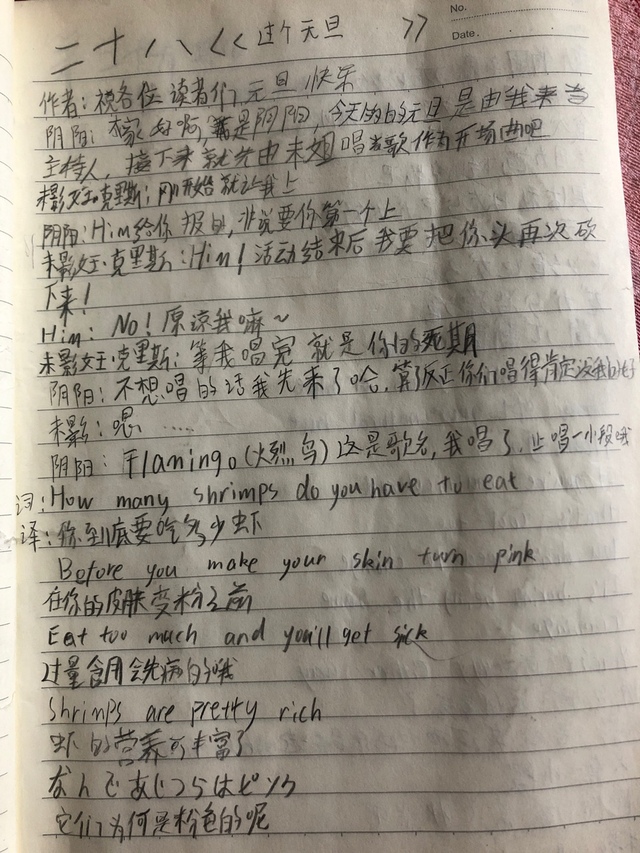 No.
Date.
二十八《过个元旦》
作者:祝各位读者们,元旦快乐
阴阳:大家好啊,我是阴阳,今天的元旦是由我来当
主持人,接下来就先由未姐唱首歌作为开场曲吧
未影女王·克里斯:刚开始就让我上
阴阳:Him给你报的,非说要你第一个上
未影女王·克里斯:Him!活动结束后我要把你头再次砍
下来!
Him:No!原谅我嘛~
未影女王·克里斯:等我唱完就是你的死期
阴阳:不想唱的话我先来了哈,算了反正你们唱得肯定没我的好
未影:嗯……
阴阳:Flamingo(火烈鸟)这是歌名,我唱了,止唱一小段哦
词:How many shrimps do you have to eat
译:你到底要吃多少虾
Before you make your skin turn pink
在你的皮肤变粉之前
Eat too mach and you'll get sick
过量食用会生病的哦
Shrimps are pretty rich
虾的营养可丰富了
なんであいつらはピンク
它们为何是粉色的呢